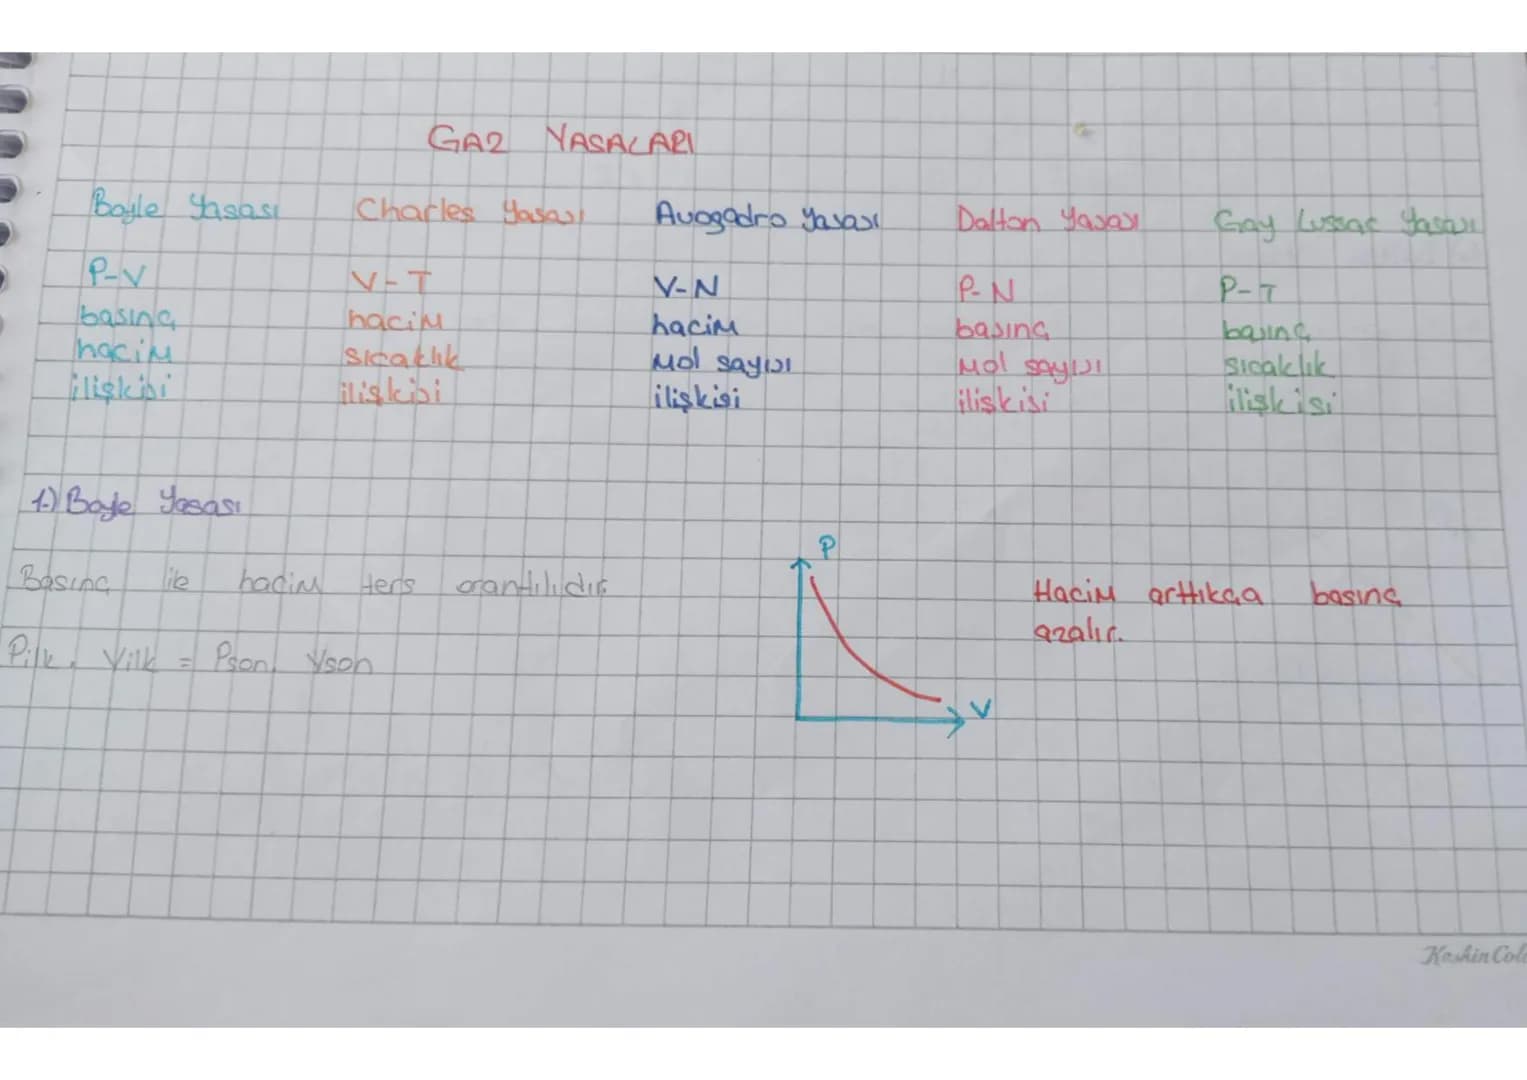 GAZ YASALARI
Boyle Yasası
Charles Yasası
Avogadro Yasası
Dalton Yasası
Gay Lussac Yasası
P-V
basınç
hacim
ilişkisi
V-T
hacim
sıcaklık
ilişkisi
V-N
hacim
mol sayısı
ilişkisi
P-N
basınç
mol sayısı
ilişkisi
P-T
basınç
sıcaklık
ilişkisi
1-) Boyle Yasası
Basınç ile hacim ters orantılıdır.
Pilk. Vilk = Pson. Vson
P
V
Hacim arttıkça basınç
azalır.